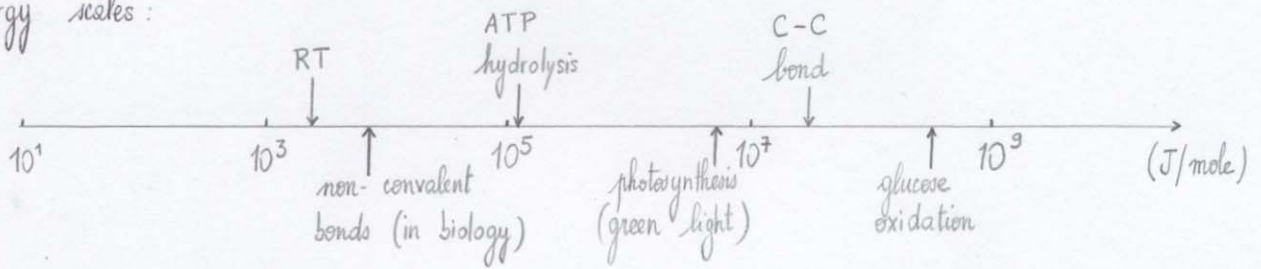 rgy scales :
ATP
hydrolysis
C-C
bond
RT
10¹
10³
10⁵
10⁷
10⁹
(J/mole)
non-convalent
bonds (in biology)
photosynthesis
(green light)
glucose
oxidation